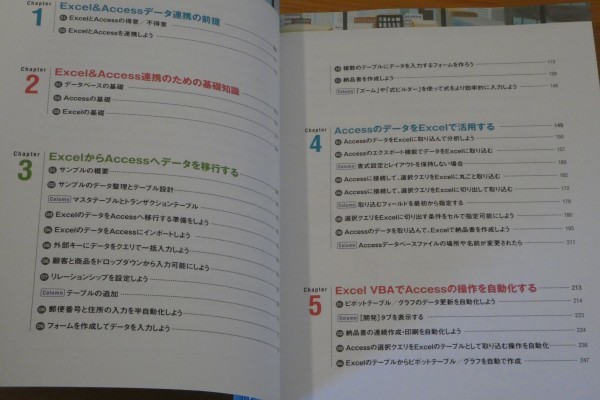 Chapter
1
Excel&Accessデータ連携の前提
01 ExcelとAccessの得意／不得意
02 ExcelとAccessを連携しよう
Chapter
2
Excel&Access連携のための基礎知識
01 データベースの基礎
02 Accessの基礎
03 Excelの基礎
Chapter
3
ExcelからAccessへデータを移行する
01 サンプルの概要
02 サンプルのデータ整理とテーブル設計
Column マスタテーブルとトランザクションテーブル
03 ExcelのデータをAccessへ移行する準備をしよう
04 ExcelのデータをAccessにインポートしよう
05 外部キーにデータをクエリで一括入力しよう
06 顧客と商品をドロップダウンから入力可能にしよう
07 リレーションシップを設定しよう
Column テーブルの追加
08 郵便番号と住所の入力を半自動化しよう
09 フォームを作成してデータを入力しよう
10 複数のテーブルにデータを入力するフォームを作ろう
11 納品書を作成しよう
Column 「ズーム」や「式ビルダー」を使って式をより効率的に入力しよう
Chapter
4
AccessのデータをExcelで活用する 149
01 AccessのデータをExcelに取り込んで分析しよう 150
02 Accessのエクスポート機能でデータをExcelに取り込む
Column 書式設定とレイアウトを保持しない場合
03 Accessに接続して、選択クエリをExcelに丸ごと取り込む
04 Accessに接続して、選択クエリをExcelに切り出して取り込む
Column 取り込むフィールドを最初から指定する
05 選択クエリをExcelに切り出す条件をセルで指定可能にしよう
06 Accessのデータを取り込んで、Excelで納品書を作成しよう
Column Accessデータベースファイルの場所や名前が変更されたら 211
Chapter
5
Excel VBAでAccessの操作を自動化する 213
01 ピボットテーブル／グラフのデータ更新を自動化しよう 214
Column ［開発］タブを表示する
02 納品書の連続作成・印刷を自動化しよう 224
03 Accessの選択クエリをExcelのテーブルとして取り込む操作を自動化 236
04 Excelのテーブルからピボットテーブル／グラフを自動で作成 247